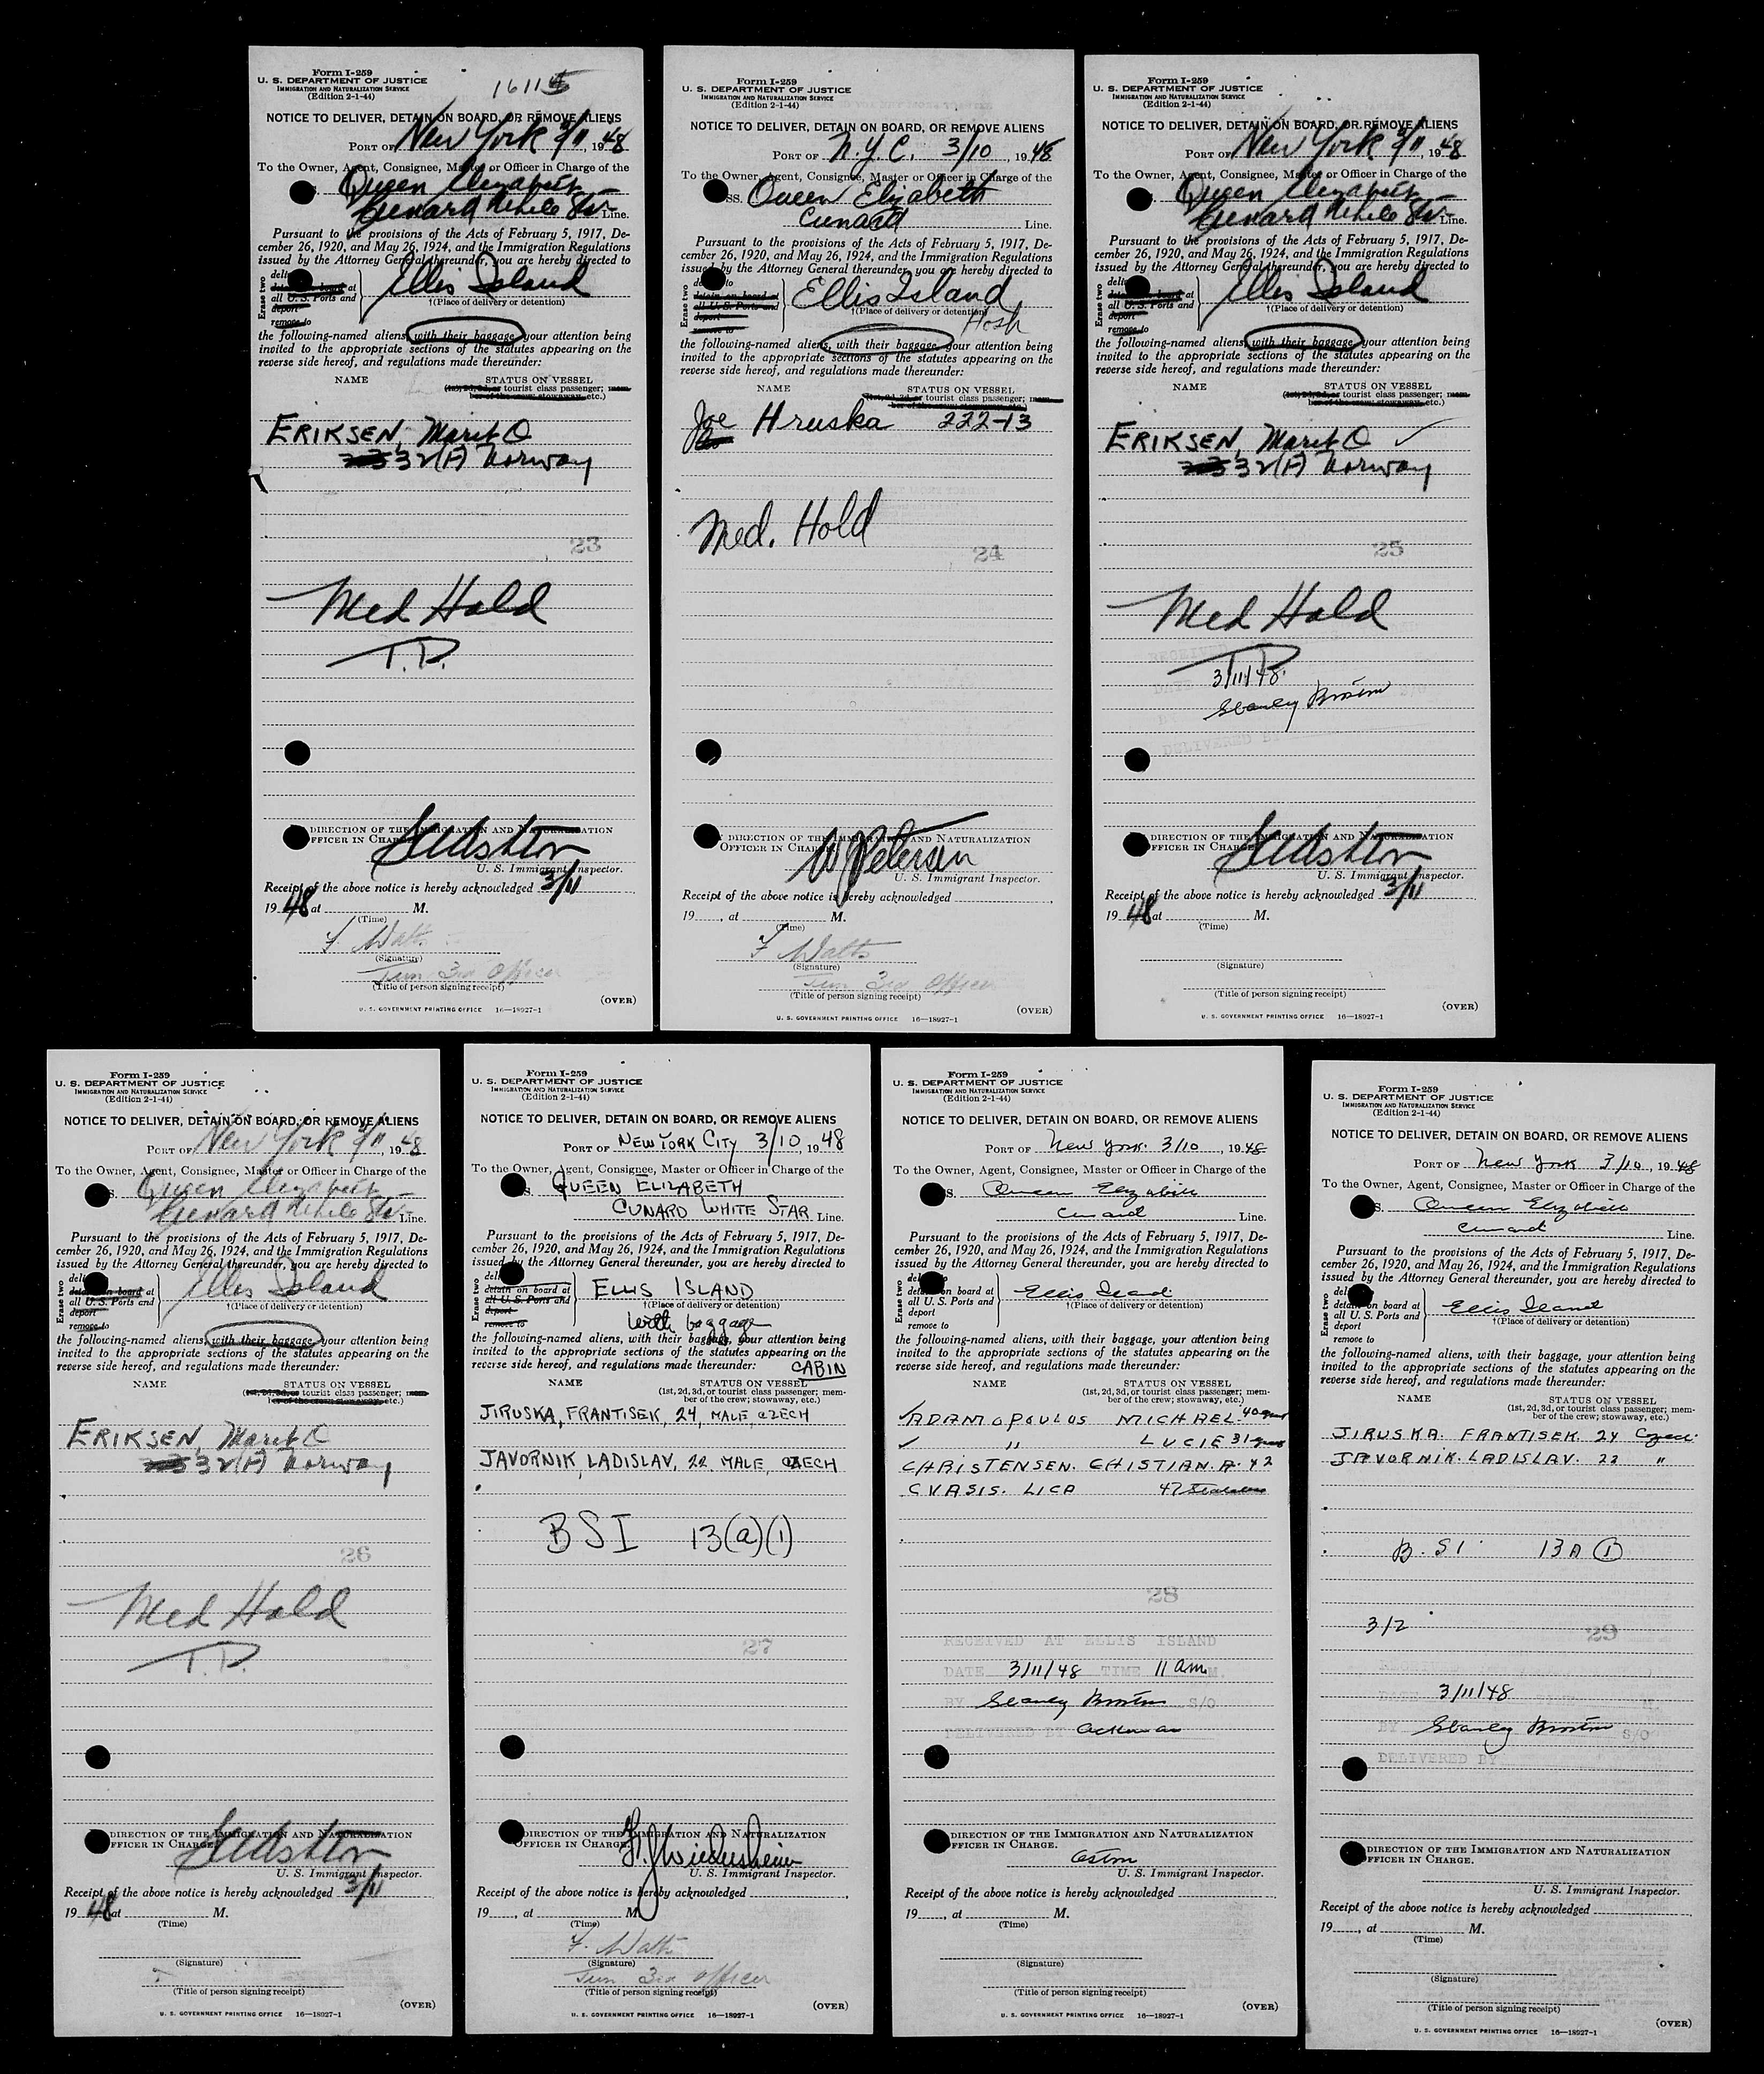 Form I-259
U. S. DEPARTMENT OF JUSTICE
IMMIGRATION AND NATURALIZATION SERVICE
(Edition 2-1-44)
16115
NOTICE TO DELIVER, DETAIN ON BOARD, OR REMOVE ALIENS
PORT OF New York 3/11, 1948
To the Owner, Agent, Consignee, Master or Officer in Charge of the
Queen Elizabeth
Cunard White Star Line.
Pursuant to the provisions of the Acts of February 5, 1917, De-
cember 26, 1920, and May 26, 1924, and the Immigration Regulations
issued by the Attorney General thereunder, you are hereby directed to
Erase two
deli
detain on board at
all U. S. Ports and
deport
remove to
Ellis Island
†(Place of delivery or detention)
the following-named aliens, with their baggage, your attention being
invited to the appropriate sections of the statutes appearing on the
reverse side hereof, and regulations made thereunder:
NAME STATUS ON VESSEL
(1st, 2d, 3d, or tourist class passenger; mem-
ber of the crew; stowaway, etc.)
ERIKSEN, Marit O
32(F) Norway
23
Med Hold
T.D.
DIRECTION OF THE IMMIGRATION AND NATURALIZATION
OFFICER IN CHARGE
U. S. Immigrant Inspector.
Receipt of the above notice is hereby acknowledged 3/11
1948 at M.
(Time)
F. Watts
(Signature)
Jun 3rd Officer
(Title of person signing receipt)
(OVER)
U. S. GOVERNMENT PRINTING OFFICE 16—18927-1
Form I-259
U. S. DEPARTMENT OF JUSTICE
IMMIGRATION AND NATURALIZATION SERVICE
(Edition 2-1-44)
NOTICE TO DELIVER, DETAIN ON BOARD, OR REMOVE ALIENS
PORT OF N.Y.C. 3/10, 1948
To the Owner, Agent, Consignee, Master or Officer in Charge of the
SS. Queen Elizabeth
Cunard Line.
Pursuant to the provisions of the Acts of February 5, 1917, De-
cember 26, 1920, and May 26, 1924, and the Immigration Regulations
issued by the Attorney General thereunder, you are hereby directed to
Erase two
de to
detain on board at
all U. S. Ports and
deport
remove to
Ellis Island,
†(Place of delivery or detention)
Hosp
the following-named aliens, with their baggage, your attention being
invited to the appropriate sections of the statutes appearing on the
reverse side hereof, and regulations made thereunder:
NAME STATUS ON VESSEL
(1st, 2d, 3d, or tourist class passenger; mem-
ber of the crew; stowaway, etc.)
Joe Hruska 222-13
Med. Hold
24
DIRECTION OF THE IMMIGRATION AND NATURALIZATION
OFFICER IN CHARGE
W Petersen
U. S. Immigrant Inspector.
Receipt of the above notice is hereby acknowledged
19 , at M.
(Time)
F Watts
(Signature)
Jun 3rd Officer
(Title of person signing receipt)
(OVER)
U. S. GOVERNMENT PRINTING OFFICE 16—18927-1
Form I-259
U. S. DEPARTMENT OF JUSTICE
IMMIGRATION AND NATURALIZATION SERVICE
(Edition 2-1-44)
NOTICE TO DELIVER, DETAIN ON BOARD, OR REMOVE ALIENS
PORT OF New York 3/11, 1948
To the Owner, Agent, Consignee, Master or Officer in Charge of the
Queen Elizabeth
Cunard White Star Line.
Pursuant to the provisions of the Acts of February 5, 1917, De-
cember 26, 1920, and May 26, 1924, and the Immigration Regulations
issued by the Attorney General thereunder, you are hereby directed to
Erase two
deli
detain on board at
all U. S. Ports and
deport
remove to
Ellis Island
†(Place of delivery or detention)
the following-named aliens, with their baggage, your attention being
invited to the appropriate sections of the statutes appearing on the
reverse side hereof, and regulations made thereunder:
NAME STATUS ON VESSEL
(1st, 2d, 3d, or tourist class passenger; mem-
ber of the crew; stowaway, etc.)
ERIKSEN, Marit O ✓
32(F) Norway
25
Med Hold
T.D.
RECEIVED
DATE 3/11/48
Stanley
DELIVERED BY
DIRECTION OF THE IMMIGRATION AND NATURALIZATION
OFFICER IN CHARGE
U. S. Immigrant Inspector.
Receipt of the above notice is hereby acknowledged 3/11
1948 at M.
(Time)
(Signature)
(Title of person signing receipt)
(OVER)
U. S. GOVERNMENT PRINTING OFFICE 16—18927-1
Form I-259
U. S. DEPARTMENT OF JUSTICE
IMMIGRATION AND NATURALIZATION SERVICE
(Edition 2-1-44)
NOTICE TO DELIVER, DETAIN ON BOARD, OR REMOVE ALIENS
PORT OF New York 3/11, 1948
To the Owner, Agent, Consignee, Master or Officer in Charge of the
S. Queen Elizabeth
Cunard White Star Line.
Pursuant to the provisions of the Acts of February 5, 1917, De-
cember 26, 1920, and May 26, 1924, and the Immigration Regulations
issued by the Attorney General thereunder, you are hereby directed to
Erase two
deli
detain on board at
all U. S. Ports and
deport
remove to
Ellis Island
†(Place of delivery or detention)
the following-named aliens, with their baggage, your attention being
invited to the appropriate sections of the statutes appearing on the
reverse side hereof, and regulations made thereunder:
NAME STATUS ON VESSEL
(1st, 2d, 3d, or tourist class passenger; mem-
ber of the crew; stowaway, etc.)
ERIKSEN, Marit O
32(F) Norway
26
Med Hold
T.D.
DIRECTION OF THE IMMIGRATION AND NATURALIZATION
OFFICER IN CHARGE
U. S. Immigrant Inspector.
Receipt of the above notice is hereby acknowledged 3/11
1948 at M.
(Time)
(Signature)
(Title of person signing receipt)
(OVER)
U. S. GOVERNMENT PRINTING OFFICE 16—18927-1
Form I-259
U. S. DEPARTMENT OF JUSTICE
IMMIGRATION AND NATURALIZATION SERVICE
(Edition 2-1-44)
NOTICE TO DELIVER, DETAIN ON BOARD, OR REMOVE ALIENS
PORT OF NEW YORK CITY 3/10, 1948
To the Owner, Agent, Consignee, Master or Officer in Charge of the
S. QUEEN ELIZABETH
CUNARD WHITE STAR Line.
Pursuant to the provisions of the Acts of February 5, 1917, De-
cember 26, 1920, and May 26, 1924, and the Immigration Regulations
issued by the Attorney General thereunder, you are hereby directed to
Erase two
deli
detain on board at
all U. S. Ports and
deport
remove to
ELLIS ISLAND
†(Place of delivery or detention)
with baggage
the following-named aliens, with their baggage, your attention being
invited to the appropriate sections of the statutes appearing on the
reverse side hereof, and regulations made thereunder:
CABIN
NAME STATUS ON VESSEL
(1st, 2d, 3d, or tourist class passenger; mem-
ber of the crew; stowaway, etc.)
JIRUSKA, FRANTISEK, 24, MALE, CZECH
JAVORNIK, LADISLAV, 22 MALE, CZECH
BSI 13(a)(1)
27
DIRECTION OF THE IMMIGRATION AND NATURALIZATION
OFFICER IN CHARGE.
U. S. Immigrant Inspector.
Receipt of the above notice is hereby acknowledged
19 , at M.
(Time)
F. Watts
(Signature)
Jun 3rd Officer
(Title of person signing receipt)
(OVER)
U. S. GOVERNMENT PRINTING OFFICE 16—18927-1
Form I-259
U. S. DEPARTMENT OF JUSTICE
IMMIGRATION AND NATURALIZATION SERVICE
(Edition 2-1-44)
NOTICE TO DELIVER, DETAIN ON BOARD, OR REMOVE ALIENS
PORT OF New York 3/10, 1948
To the Owner, Agent, Consignee, Master or Officer in Charge of the
S. Queen Elizabeth
Cunard Line.
Pursuant to the provisions of the Acts of February 5, 1917, De-
cember 26, 1920, and May 26, 1924, and the Immigration Regulations
issued by the Attorney General thereunder, you are hereby directed to
Erase two
deli
detain on board at
all U. S. Ports and
deport
remove to
Ellis Island
†(Place of delivery or detention)
the following-named aliens, with their baggage, your attention being
invited to the appropriate sections of the statutes appearing on the
reverse side hereof, and regulations made thereunder:
NAME STATUS ON VESSEL
(1st, 2d, 3d, or tourist class passenger; mem-
ber of the crew; stowaway, etc.)
✓ ADAMOPOULUS MICHAEL 40
✓ " LUCIE 31
CHRISTENSEN. CHISTIAN. A. 42
CVASIS. LICA 47
28
RECEIVED AT ELLIS ISLAND
DATE 3/11/48 TIME 11 am M.
BY Stanley S/O
DELIVERED BY Ackerman
DIRECTION OF THE IMMIGRATION AND NATURALIZATION
OFFICER IN CHARGE.
U. S. Immigrant Inspector.
Receipt of the above notice is hereby acknowledged
19 , at M.
(Time)
(Signature)
(Title of person signing receipt)
(OVER)
U. S. GOVERNMENT PRINTING OFFICE 16—18927-1
Form I-259
U. S. DEPARTMENT OF JUSTICE
IMMIGRATION AND NATURALIZATION SERVICE
(Edition 2-1-44)
NOTICE TO DELIVER, DETAIN ON BOARD, OR REMOVE ALIENS
PORT OF New York 3/10, 1948
To the Owner, Agent, Consignee, Master or Officer in Charge of the
S. Queen Elizabeth
Cunard Line.
Pursuant to the provisions of the Acts of February 5, 1917, De-
cember 26, 1920, and May 26, 1924, and the Immigration Regulations
issued by the Attorney General thereunder, you are hereby directed to
Erase two
deli
detain on board at
all U. S. Ports and
deport
remove to
Ellis Island
†(Place of delivery or detention)
the following-named aliens, with their baggage, your attention being
invited to the appropriate sections of the statutes appearing on the
reverse side hereof, and regulations made thereunder:
NAME STATUS ON VESSEL
(1st, 2d, 3d, or tourist class passenger; mem-
ber of the crew; stowaway, etc.)
JIRUSKA. FRANTISEK. 24
JAVORNIK. LADISLAV. 22 "
B. SI 13A(1)
3/2
29
DATE 3/11/48
BY Stanley S/O
DELIVERED BY
DIRECTION OF THE IMMIGRATION AND NATURALIZATION
OFFICER IN CHARGE.
U. S. Immigrant Inspector.
Receipt of the above notice is hereby acknowledged
19 , at M.
(Time)
(Signature)
(Title of person signing receipt)
(OVER)
U. S. GOVERNMENT PRINTING OFFICE 16—18927-1